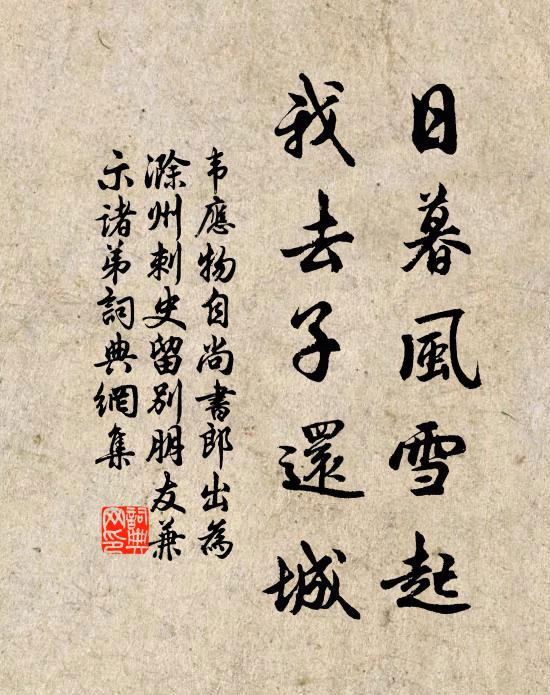 日暮風雪起
我去子還城
韦應物自尚書郎出為
滁州刺史留別朋友兼
示诸弟詞典網集
詞典网印